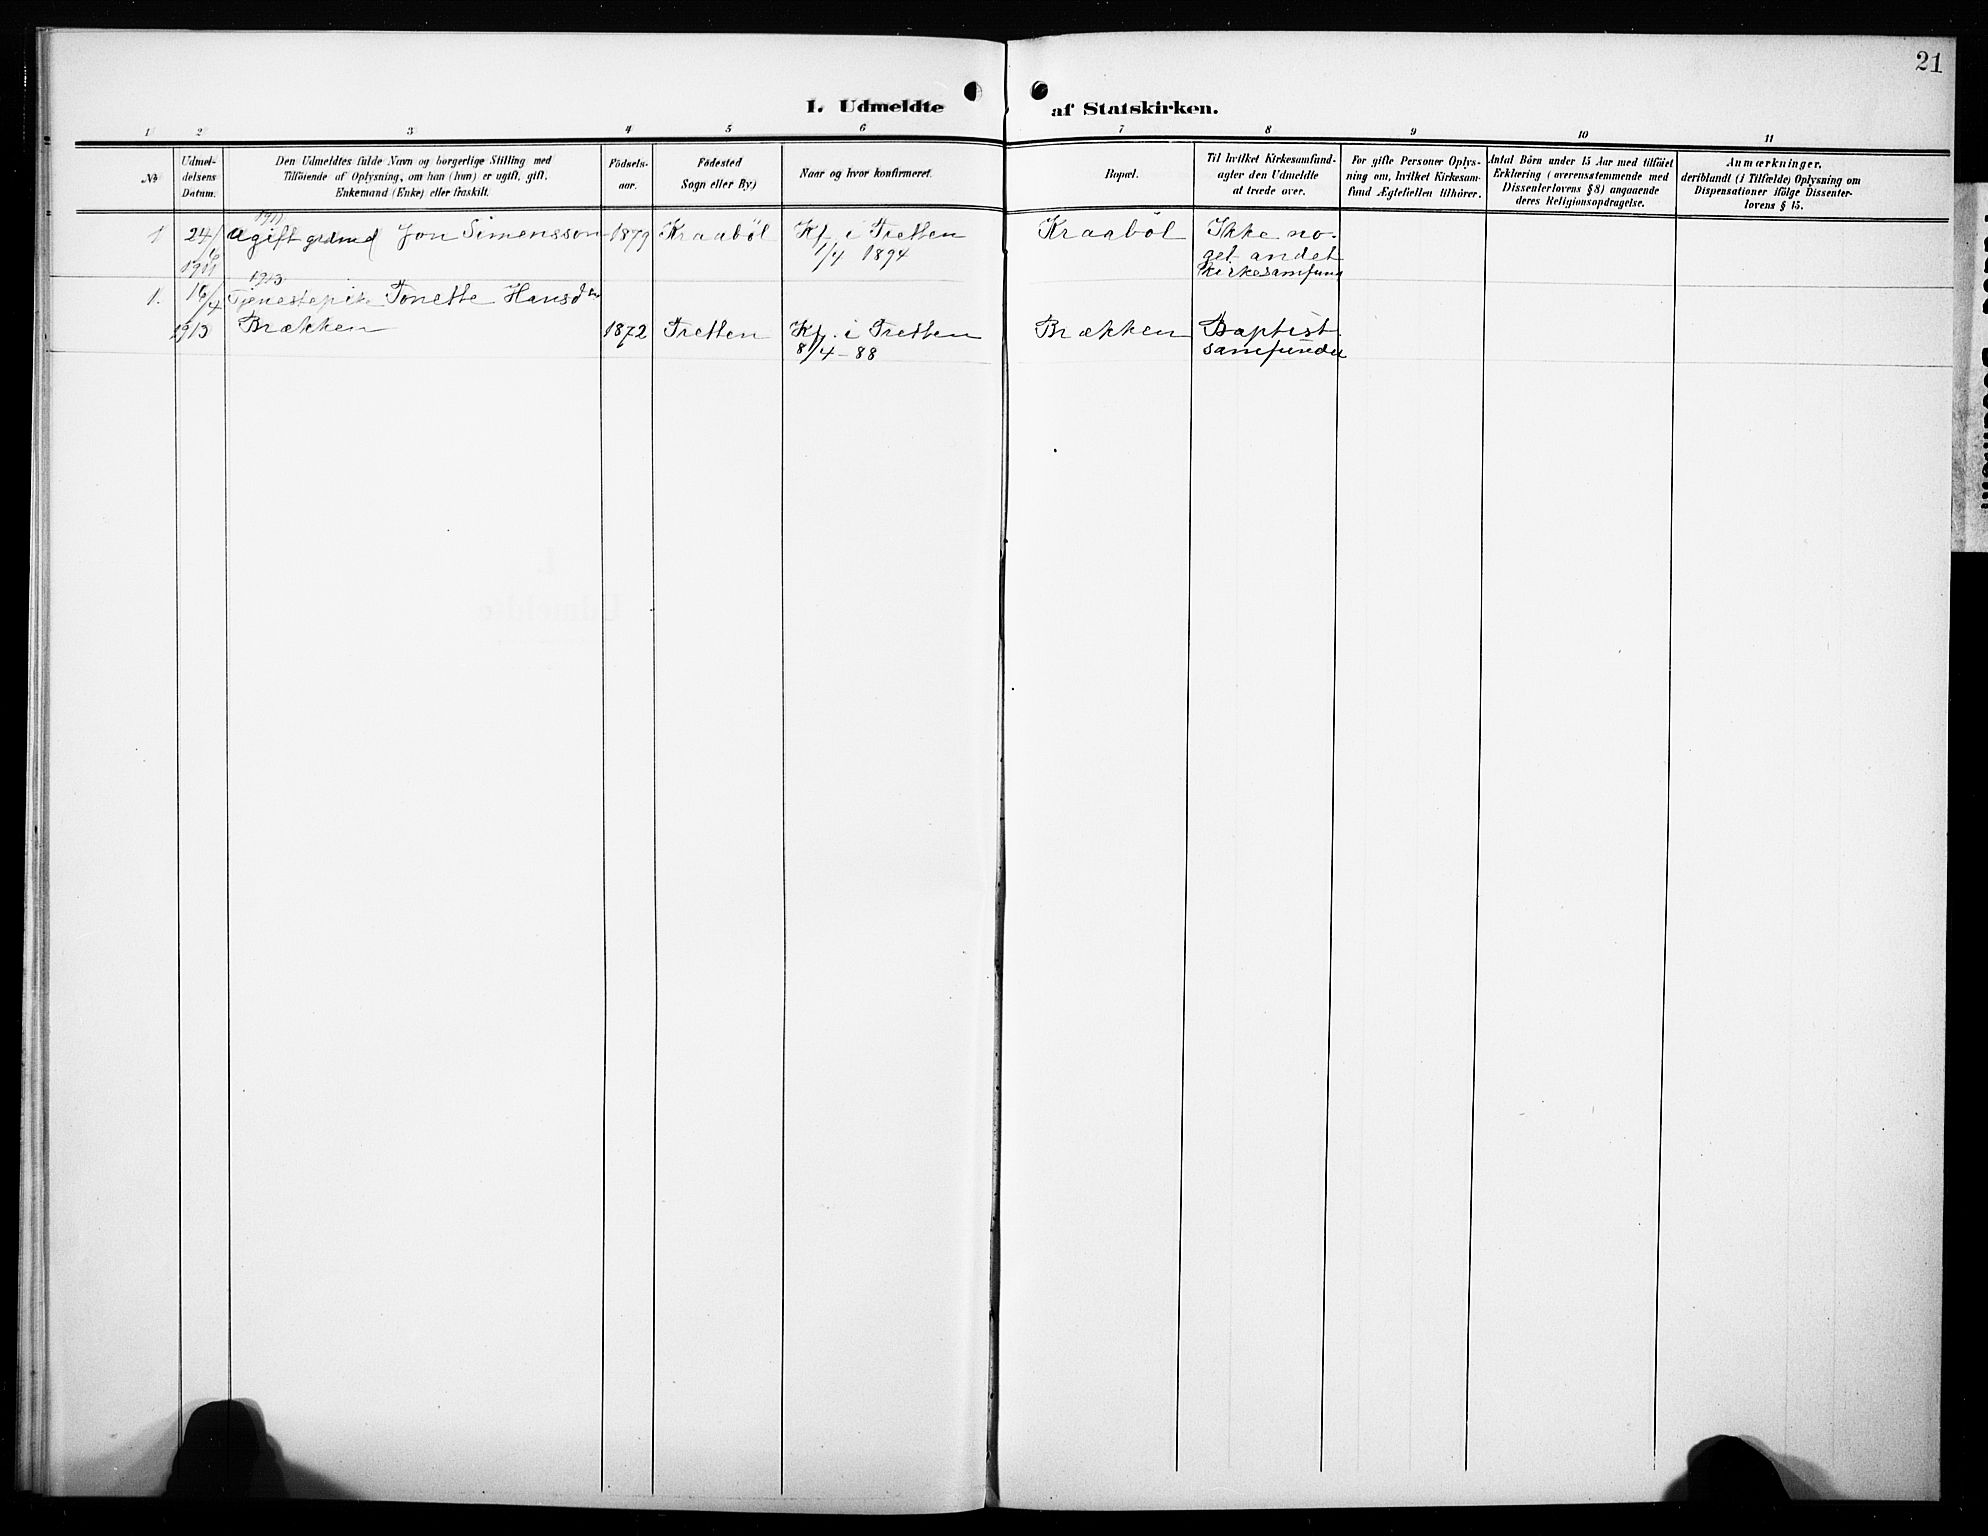 21
I. Udmeldte af Statskirken.
1 2 3 4 5 6 7 8 9 10 11
No
Udmel-
delsens
Datum.
Den Udmeldtes fulde Navn og borgerlige Stilling med
Tilföiende af Oplysning, om han (hun) er ugift, gift,
Enkemand (Enke) eller fraskilt.
Födsels-
aar.
Födested
Sogn eller By)
Naar og hvor konfirmeret.
Bopæl.
Til hvilket Kirkesamfund-
agter den Udmeldte
at træde over.
For gifte Personer Oplys-
ning om, hvilket Kirkesam-
fund Ægtefællen tilhörer.
Antal Börn under 15 Aar med tilföiet
Erklæring (overensstemmende med
Dissenterlovens § 8) angaaende
deres Religionsopdragelse.
Anmærkninger.
deriblandt (i Tilfælde) Oplysning om
Dispensationer ifölge Dissenter-
lovens § 15.
1911
1 24/ Ugift Jon Simensson 1879 Kraaböl Kf. i Tretten Kraaböl Ikke no-
1911 1/4 1894 get andet
kirkesamfund
1913
1. 16/4 Tjenestepike Tonette Hansdtr
1913 Brækken 1872 Tretten Kf. i Tretten Brækken Baptist
8/4-88 samfundet